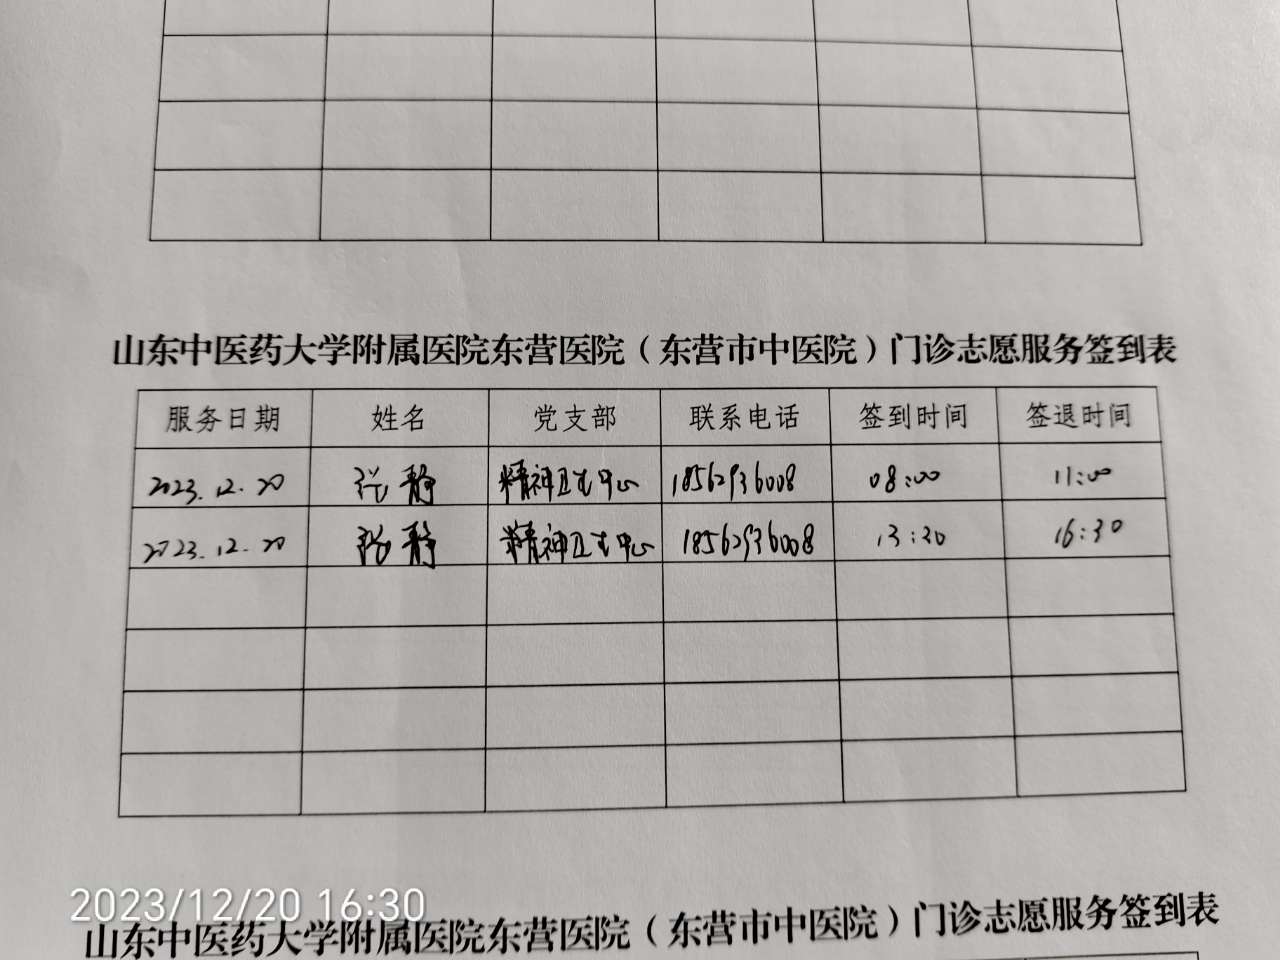 山东中医药大学附属医院东营医院（东营市中医院）门诊志愿服务签到表
服务日期 姓名 党支部 联系电话 签到时间 签退时间
2023.12.20 张静 精神卫生中心 18562936008 08:00 11:00
2023.12.20 张静 精神卫生中心 18562936008 13:30 16:30
2023/12/20 16:30
山东中医药大学附属医院东营医院（东营市中医院）门诊志愿服务签到表